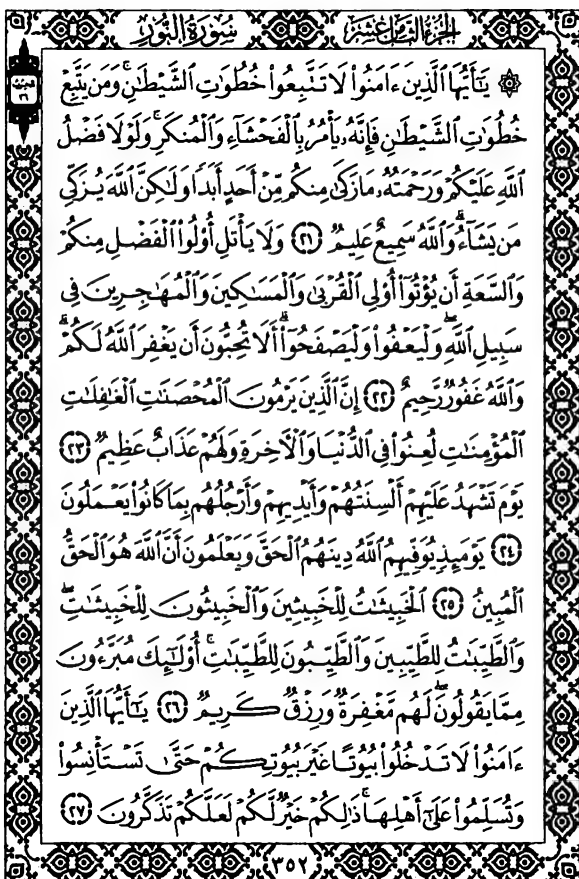 الجزء الثامن عشر سورة النور
۞ يَٰٓأَيُّهَا ٱلَّذِينَ ءَامَنُوا۟ لَا تَتَّبِعُوا۟ خُطُوَٰتِ ٱلشَّيْطَٰنِ ۚ وَمَن يَتَّبِعْ
خُطُوَٰتِ ٱلشَّيْطَٰنِ فَإِنَّهُۥ يَأْمُرُ بِٱلْفَحْشَآءِ وَٱلْمُنكَرِ ۚ وَلَوْلَا فَضْلُ
ٱللَّهِ عَلَيْكُمْ وَرَحْمَتُهُۥ مَا زَكَىٰ مِنكُم مِّنْ أَحَدٍ أَبَدًا وَلَٰكِنَّ ٱللَّهَ يُزَكِّى
مَن يَشَآءُ ۗ وَٱللَّهُ سَمِيعٌ عَلِيمٌ ﴿٢١﴾ وَلَا يَأْتَلِ أُو۟لُوا۟ ٱلْفَضْلِ مِنكُمْ
وَٱلسَّعَةِ أَن يُؤْتُوٓا۟ أُو۟لِى ٱلْقُرْبَىٰ وَٱلْمَسَٰكِينَ وَٱلْمُهَٰجِرِينَ فِى
سَبِيلِ ٱللَّهِ ۖ وَلْيَعْفُوا۟ وَلْيَصْفَحُوٓا۟ ۗ أَلَا تُحِبُّونَ أَن يَغْفِرَ ٱللَّهُ لَكُمْ ۗ
وَٱللَّهُ غَفُورٌ رَّحِيمٌ ﴿٢٢﴾ إِنَّ ٱلَّذِينَ يَرْمُونَ ٱلْمُحْصَنَٰتِ ٱلْغَٰفِلَٰتِ
ٱلْمُؤْمِنَٰتِ لُعِنُوا۟ فِى ٱلدُّنْيَا وَٱلْءَاخِرَةِ وَلَهُمْ عَذَابٌ عَظِيمٌ ﴿٢٣﴾
يَوْمَ تَشْهَدُ عَلَيْهِمْ أَلْسِنَتُهُمْ وَأَيْدِيهِمْ وَأَرْجُلُهُم بِمَا كَانُوا۟ يَعْمَلُونَ
﴿٢٤﴾ يَوْمَئِذٍ يُوَفِّيهِمُ ٱللَّهُ دِينَهُمُ ٱلْحَقَّ وَيَعْلَمُونَ أَنَّ ٱللَّهَ هُوَ ٱلْحَقُّ
ٱلْمُبِينُ ﴿٢٥﴾ ٱلْخَبِيثَٰتُ لِلْخَبِيثِينَ وَٱلْخَبِيثُونَ لِلْخَبِيثَٰتِ ۖ
وَٱلطَّيِّبَٰتُ لِلطَّيِّبِينَ وَٱلطَّيِّبُونَ لِلطَّيِّبَٰتِ ۚ أُو۟لَٰٓئِكَ مُبَرَّءُونَ
مِمَّا يَقُولُونَ ۖ لَهُم مَّغْفِرَةٌ وَرِزْقٌ كَرِيمٌ ﴿٢٦﴾ يَٰٓأَيُّهَا ٱلَّذِينَ
ءَامَنُوا۟ لَا تَدْخُلُوا۟ بُيُوتًا غَيْرَ بُيُوتِكُمْ حَتَّىٰ تَسْتَأْنِسُوا۟
وَتُسَلِّمُوا۟ عَلَىٰٓ أَهْلِهَا ۚ ذَٰلِكُمْ خَيْرٌ لَّكُمْ لَعَلَّكُمْ تَذَكَّرُونَ ﴿٢٧﴾
٣٥٢